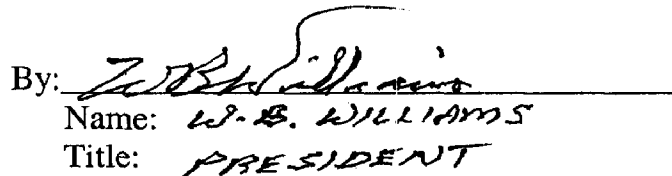 By: WBWilliams
Name: W.B. WILLIAMS
Title: PRESIDENT